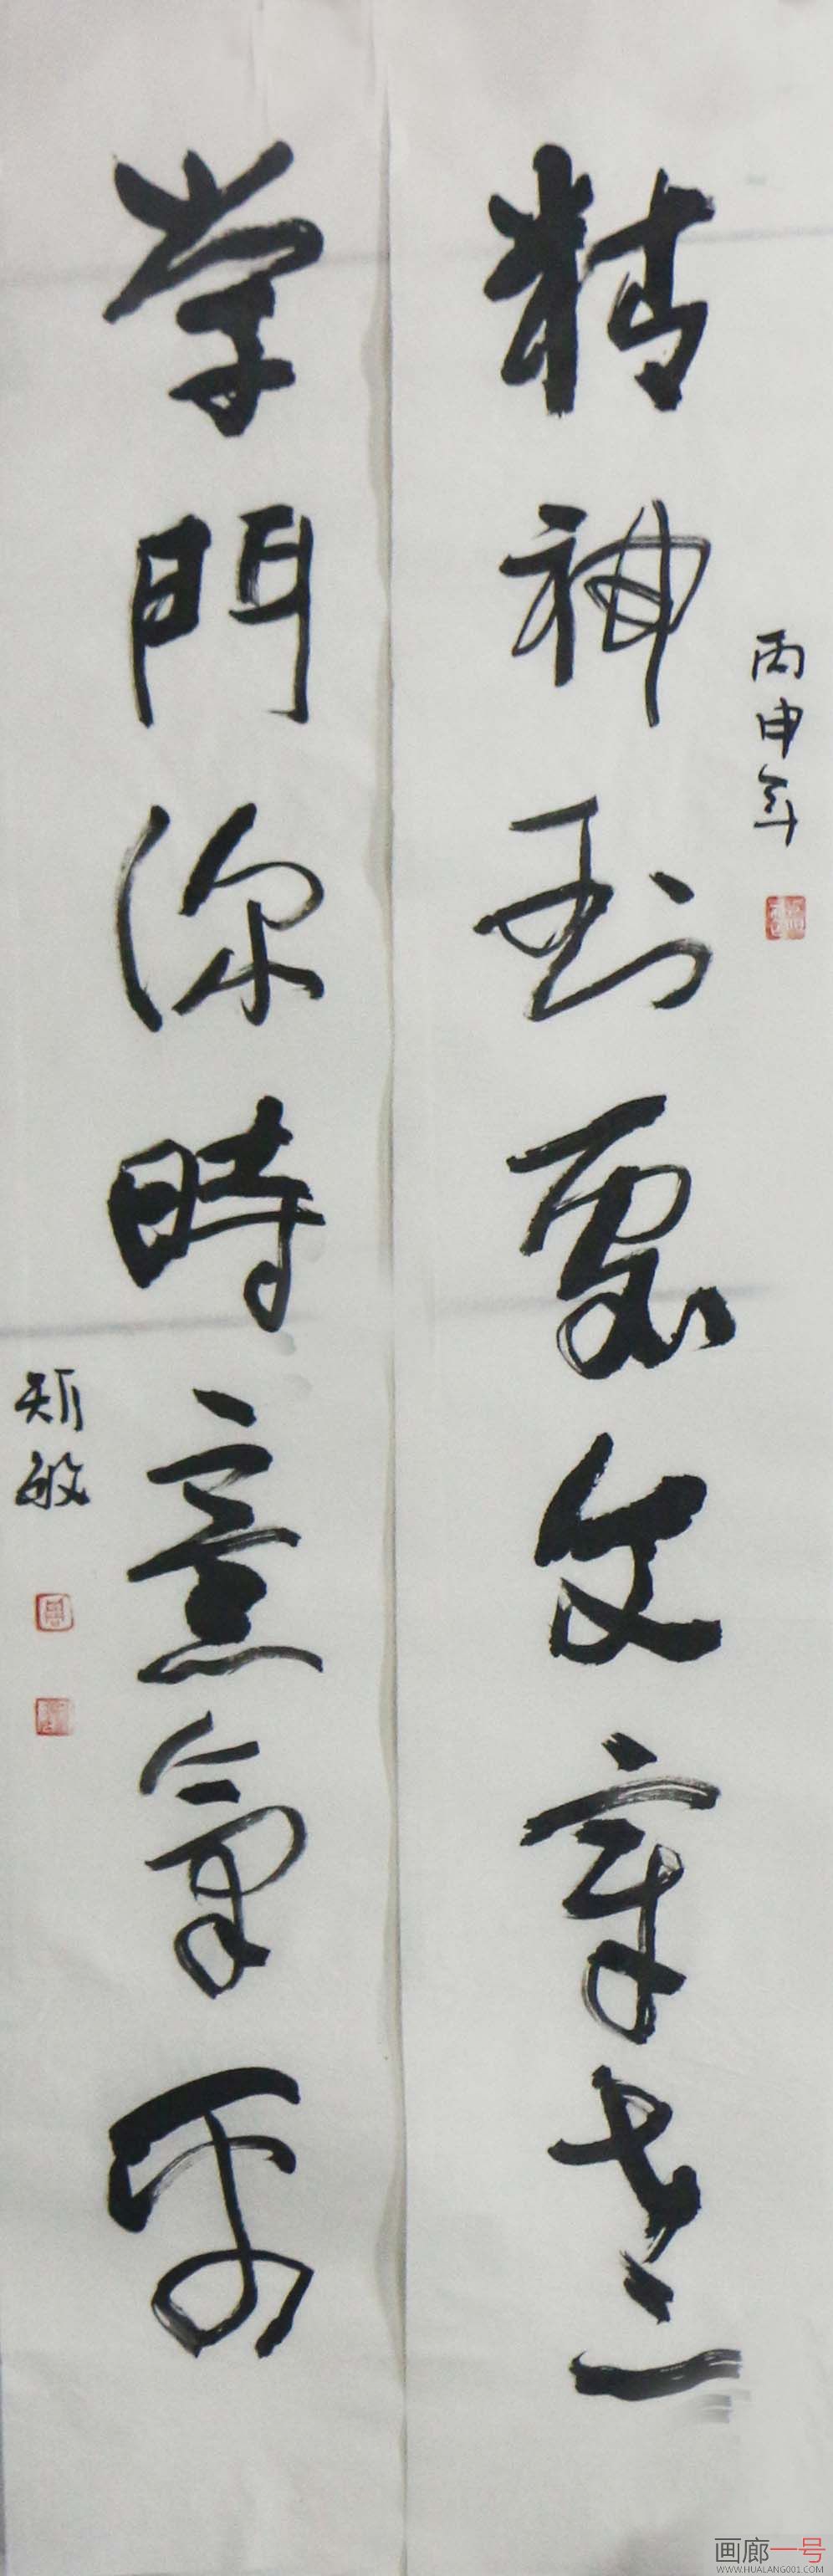 丙申年
精神到處文章老
学門深時意氣平
敏
画廊一号
WWW.HUALANG001.COM